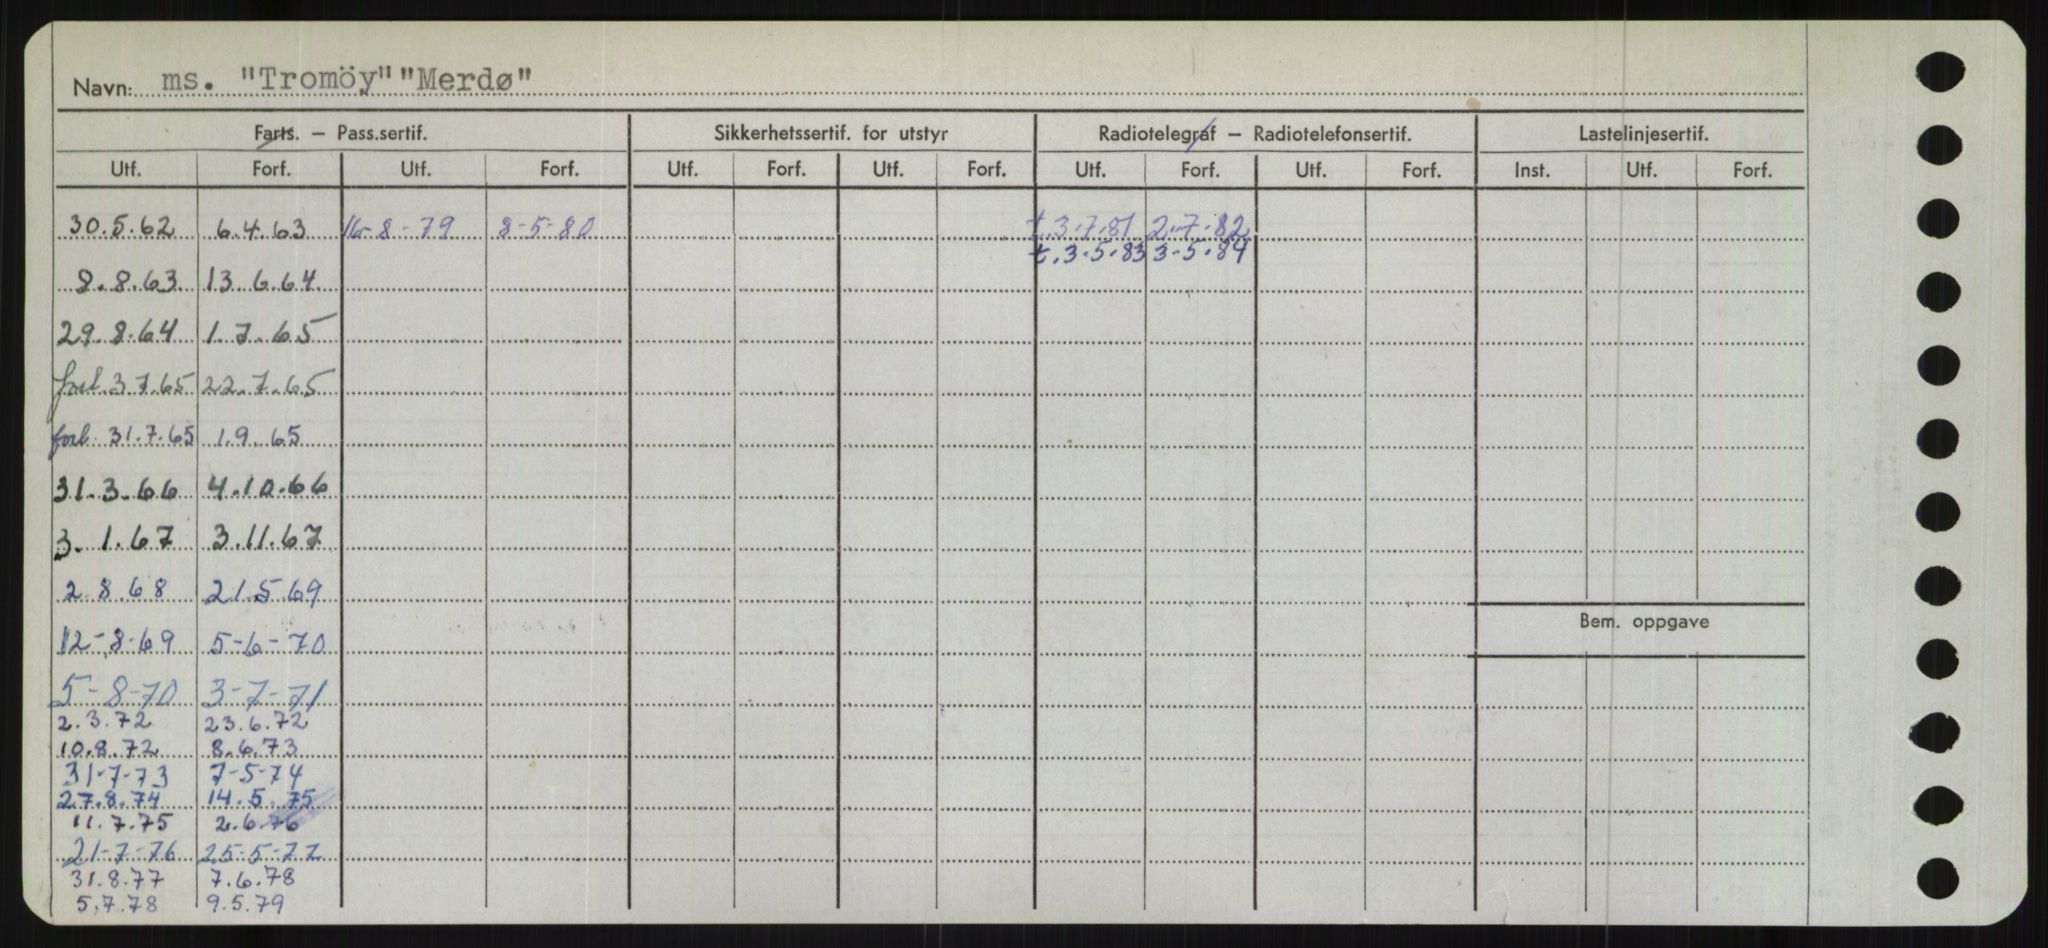 Navn: ms. "Tromöy" "Merdø"
Farts. – Pass.sertif. Sikkerhetssertif. for utstyr Radiotelegraf – Radiotelefonsertif. Lastelinjesertif.
Utf. Forf. Utf. Forf. Utf. Forf. Utf. Forf. Utf. Forf. Utf. Forf. Inst. Utf. Forf.
30.5.62 6.4.63 16-8-79 8-5-80 t.3.7.81 2.7.82
t.3.5.83 3-5.84
8.8.63 13.6.64
29.8.64 1.7.65
forl. 3.7.65 22.7.65
forl. 31.7.65 1.9.65
31.3.66 4.10.66
3.1.67 3.11.67
2.8.68 21.5.69
Bem. oppgave
12-8-69 5-6-70
5-8-70 3-7-71
2.3.72 23.6.72
10.8.72 8.6.73
31-7-73 7-5-74
27.8.74 14.5.75
11.7.75 2.6.76
21-7-76 25-5-77
31.8.77 7.6.78
5.7.78 9.5.79